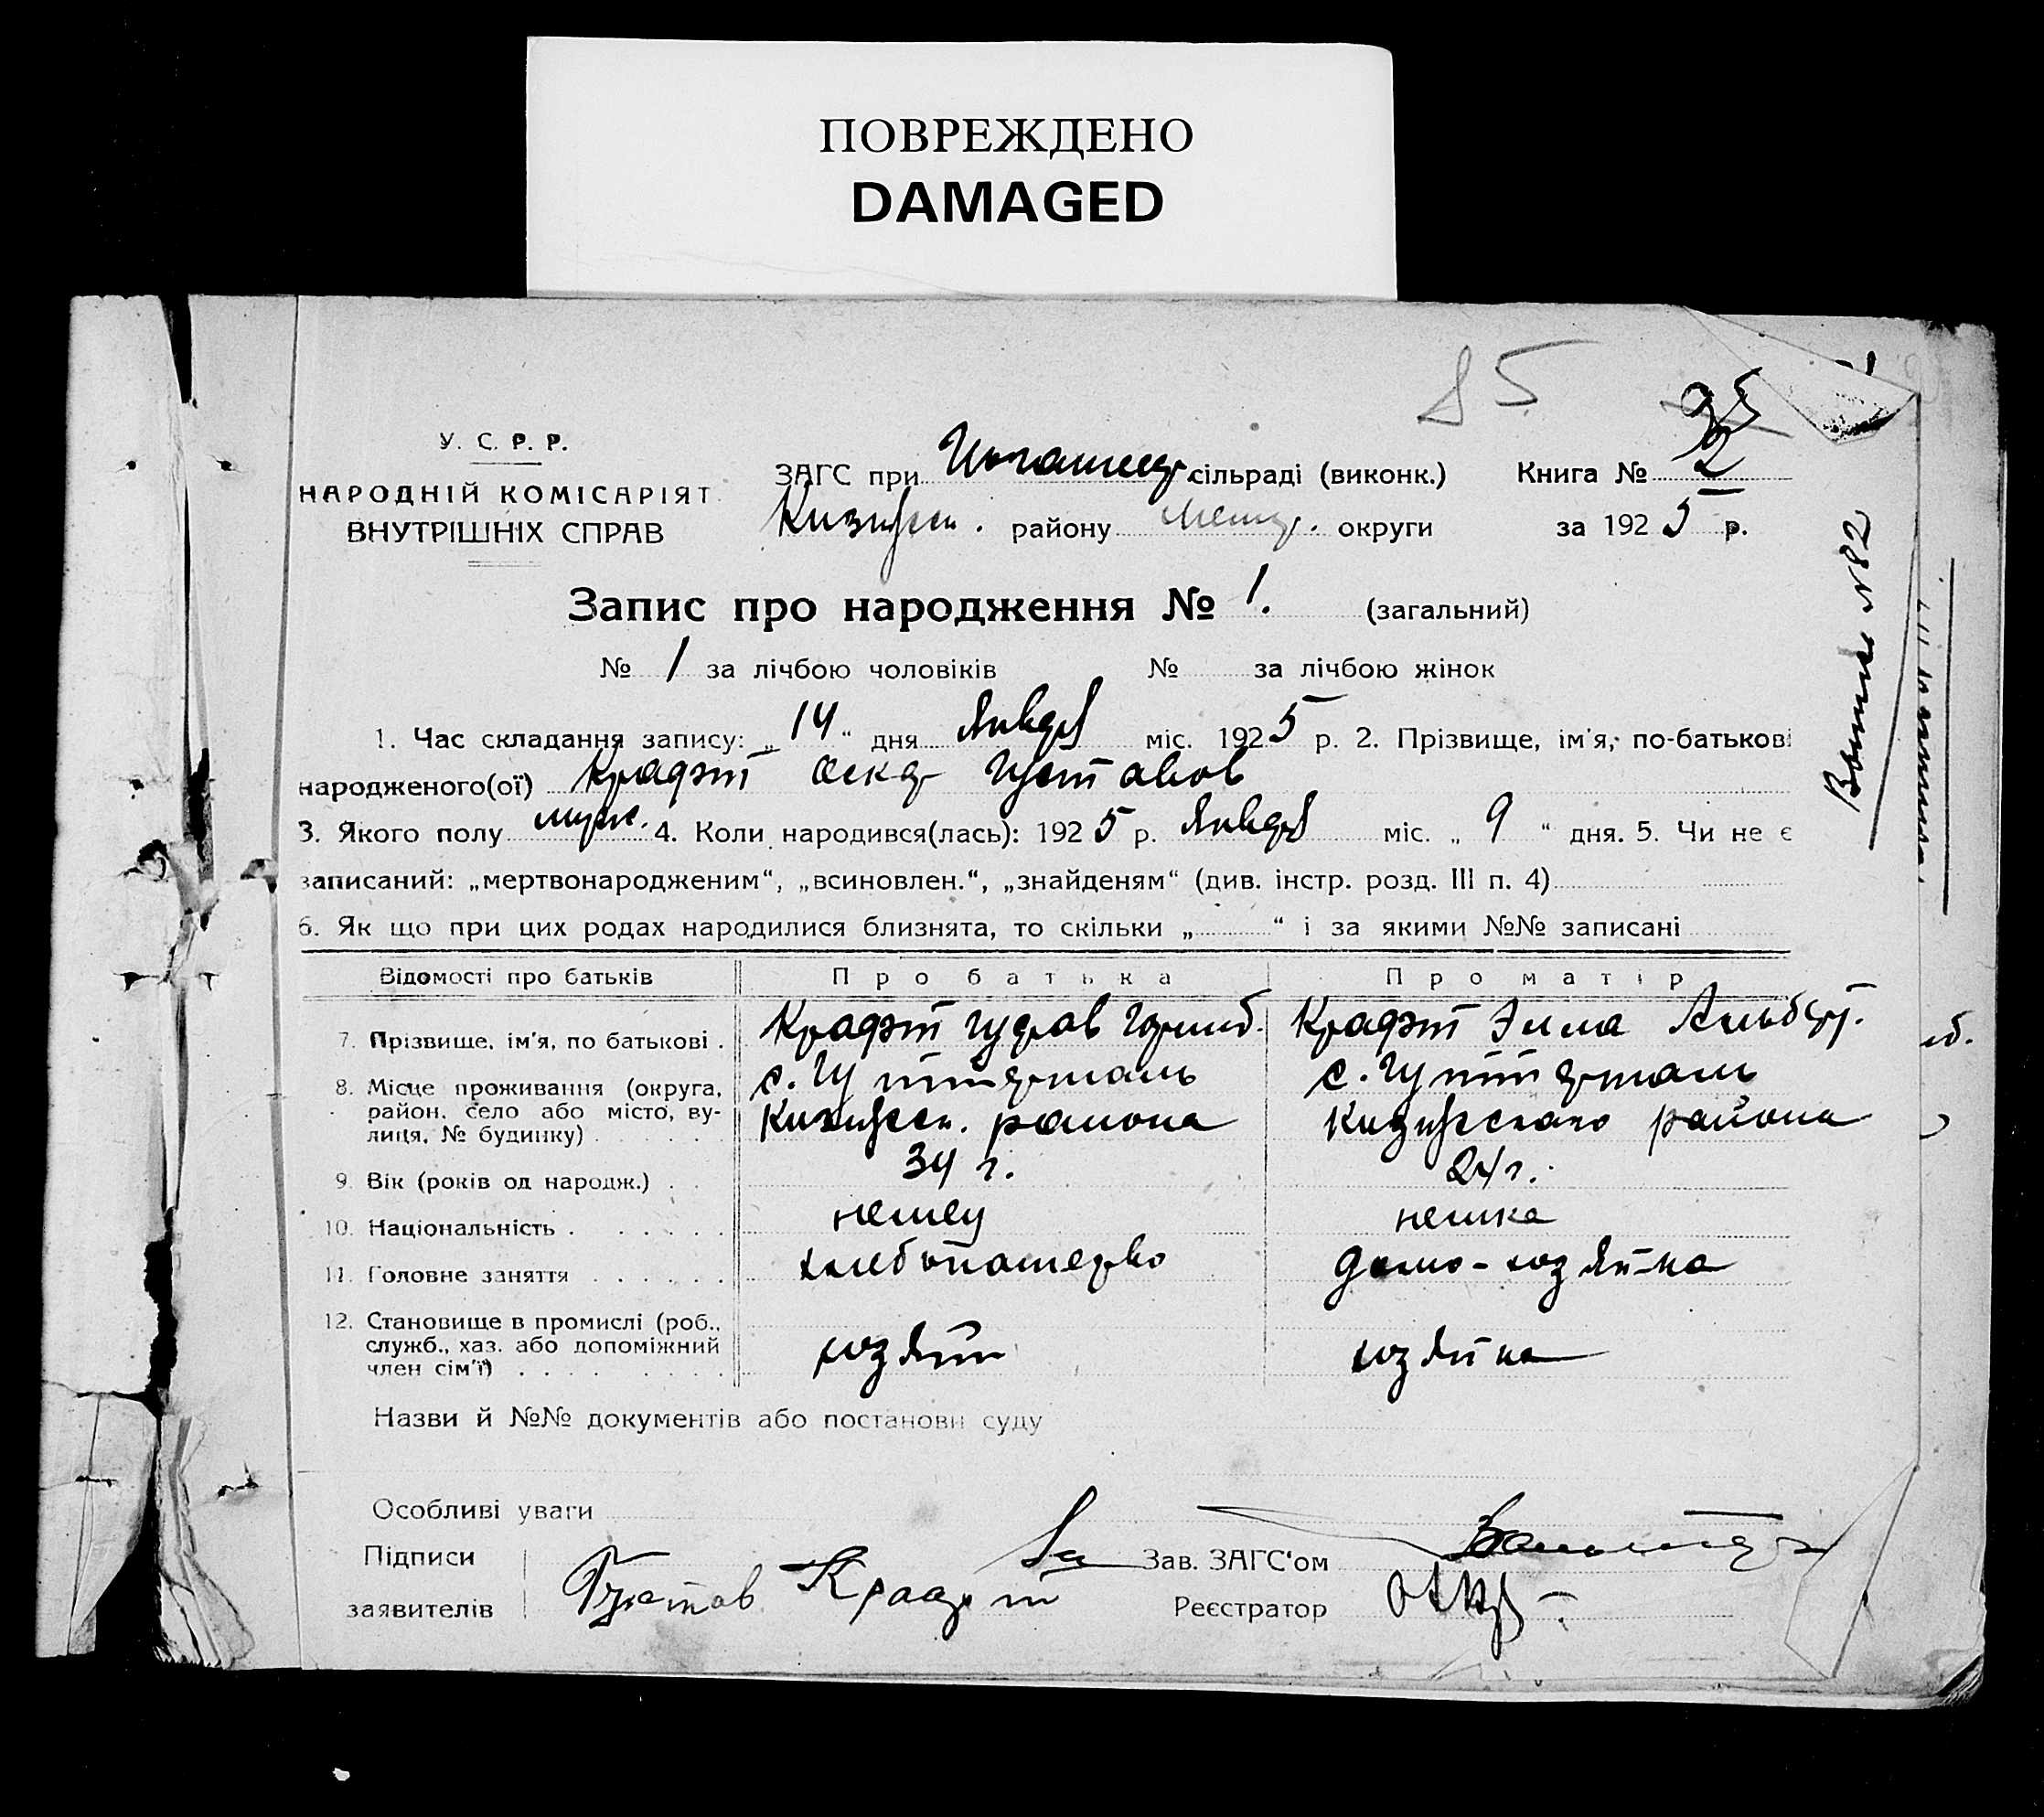 ПОВРЕЖДЕНО
DAMAGED
85
У. С. Р. Р.
НАРОДНІЙ КОМІСАРІЯТ
ВНУТРІШНІХ СПРАВ
ЗАГС при сільраді (виконк.) Книга № 2
району округи за 1925 р.
Запис про народження № 1. (загальний)
№ 1 за лічбою чоловіків № за лічбою жінок
1. Час складання запису: „14“ дня Января міс. 1925 р. 2. Прізвище, ім'я, по-батькові
народженого(ої) Крафт Оскар Густавов
3. Якого полу муж. 4. Коли народився(лась): 1925 р. Января міс. „9“ дня. 5. Чи не є
записаний: „мертвонародженим“, „всиновлен.“, „знайденям“ (див. інстр. розд. III п. 4)
6. Як що при цих родах народилися близнята, то скільки „ “ і за якими №№ записані
Відомості про батьків Про батька Про матір
7. Прізвище, ім'я, по батькові . Крафт Крафт Эмма Альберт.
8. Місце проживання (округа, с. Гуттерталь с. Гуттерталь
район, село або місто, ву-
лиця, № будинку) . района района
9. Вік (років од народж.) . . 34 г. 24 г.
10. Національність . немец немка
11. Головне заняття хлебопашество домо-хозяйка
12. Становище в промислі (роб.,
служб., хаз. або допоміжний
член сім'ї) хозяин хозяйка
Назви й №№ документів або постанови суду
Особливі уваги
Підписи
заявителів Густав Крафт
Зав. ЗАГС'ом
Реєстратор
№ 82